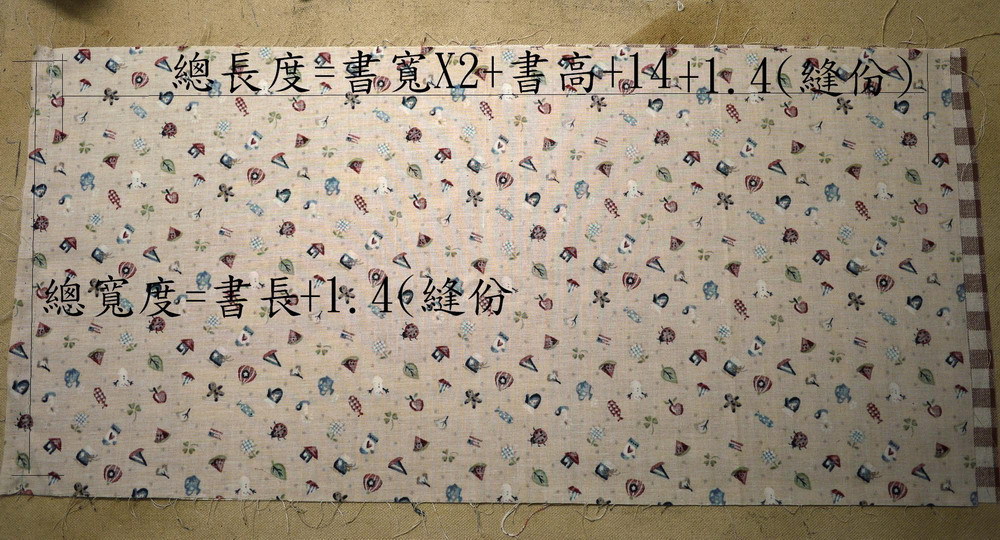 總長度=書寬X2+書高+14+1.4(縫份)
總寬度=書長+1.4(縫份